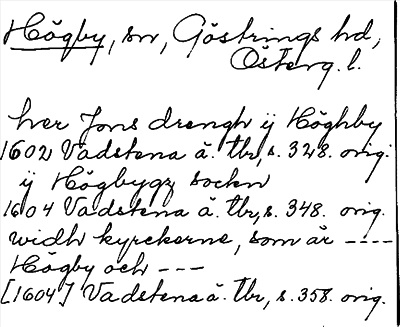 Högby, sn, Göstrings hd,
Österg. l.
her Jons drengh ij Höghby
1602 Vadstena ä. tbr, s. 328. orig.
ij Högbygz sockn
1604 Vadstena ä. tbr, s. 348. orig.
widh kyrckerne, som är ----
Högby och ---
[1604] Vadstena ä. tbr, s. 358. orig.